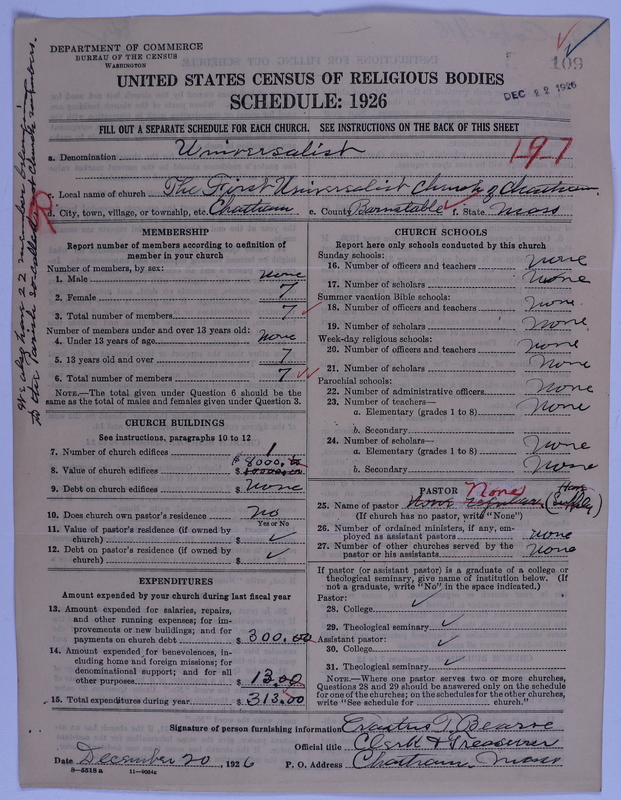 DEPARTMENT OF COMMERCE
BUREAU OF THE CENSUS
WASHINGTON
109
DEC 22 1926
UNITED STATES CENSUS OF RELIGIOUS BODIES
SCHEDULE: 1926
FILL OUT A SEPARATE SCHEDULE FOR EACH CHURCH. SEE INSTRUCTIONS ON THE BACK OF THIS SHEET
a. Denomination Universalist
197
c. Local name of church The First Universalist Church of Chatham
d. City, town, village, or township, etc. Chatham e. County Barnstable f. State Mass
We also have 22 members belonging
to the Parish so called not Church members.
MEMBERSHIP
Report number of members according to definition of
member in your church
Number of members, by sex:
1. Male none
2. Female 7
3. Total number of members 7
Number of members under and over 13 years old:
4. Under 13 years of age none
5. 13 years old and over 7
6. Total number of members 7
NOTE.—The total given under Question 6 should be
same as the total of males and females given under Question 3.
CHURCH BUILDINGS
See instructions, paragraphs 10 to 12
7. Number of church edifices 1
$ 8000.
8. Value of church edifices $ 10000.00
9. Debt on church edifices $ none
10. Does church own pastor's residence? no
Yes or No
11. Value of pastor's residence (if owned by
church) $ ✓
12. Debt on pastor's residence (if owned by
church) $ ✓
EXPENDITURES
Amount expended by your church during last fiscal year
13. Amount expended for salaries, repairs,
and other running expenses; for im-
provements or new buildings; and for
payments on church debt $ 300.00
14. Amount expended for benevolences, in-
cluding home and foreign missions; for
denominational support; and for all
other purposes $ 13.00
15. Total expenditures during year $ 313.00
CHURCH SCHOOLS
Report here only schools conducted by this church
Sunday schools:
16. Number of officers and teachers none
17. Number of scholars none
Summer vacation Bible schools:
18. Number of officers and teachers none
19. Number of scholars none
Week-day religious schools:
20. Number of officers and teachers none
21. Number of scholars none
Parochial schools:
22. Number of administrative officers none
23. Number of teachers—
a. Elementary (grades 1 to 8) none
b. Secondary
24. Number of scholars—
a. Elementary (grades 1 to 8) none
b. Secondary none
PASTOR None
25. Name of pastor none regular (Supply)
(If church has no pastor, write "None")
26. Number of ordained ministers, if any, em-
ployed as assistant pastors none
27. Number of other churches served by the
pastor or his assistants none
If pastor (or assistant pastor) is a graduate of a college or
theological seminary, give name of institution below. (If
not a graduate, write "No" in the space indicated.)
Pastor:
28. College ✓
29. Theological seminary ✓
Assistant pastor:
30. College ✓
31. Theological seminary ✓
NOTE.—Where one pastor serves two or more churches,
Questions 28 and 29 should be answered only on the schedule
for one of the churches; on the schedules for the other churches,
write "See schedule for church."
Signature of person furnishing information Erastus T. Bearse
Official title Clerk & Treasurer
Date December 20, 1926 P. O. Address Chatham, Mass
8—5518 a 11—9034z